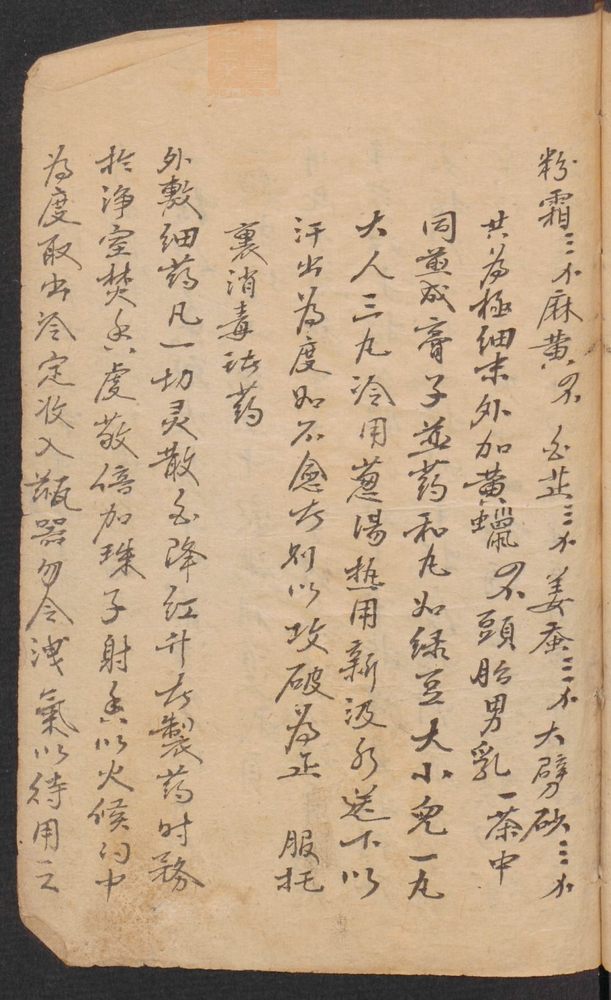 粉霜三个麻黄 白芷三个 姜蚕三个 大劈砂三个
共为極细末外加黄蠟 头頭胎男乳一茶中
同煎成膏子並药和丸如绿豆大小児一丸
大人三丸冷用葱湯热用新汲水送下以
汗出为度如不愈者则以攻破为正 服托
裏消毒药
外敷细药凡一切灵散白降红升者製药时務
於净室焚香虔敬倍加珠子射香以火候向中
为度取出冷定收入瓶器勿令洩氣以待用之